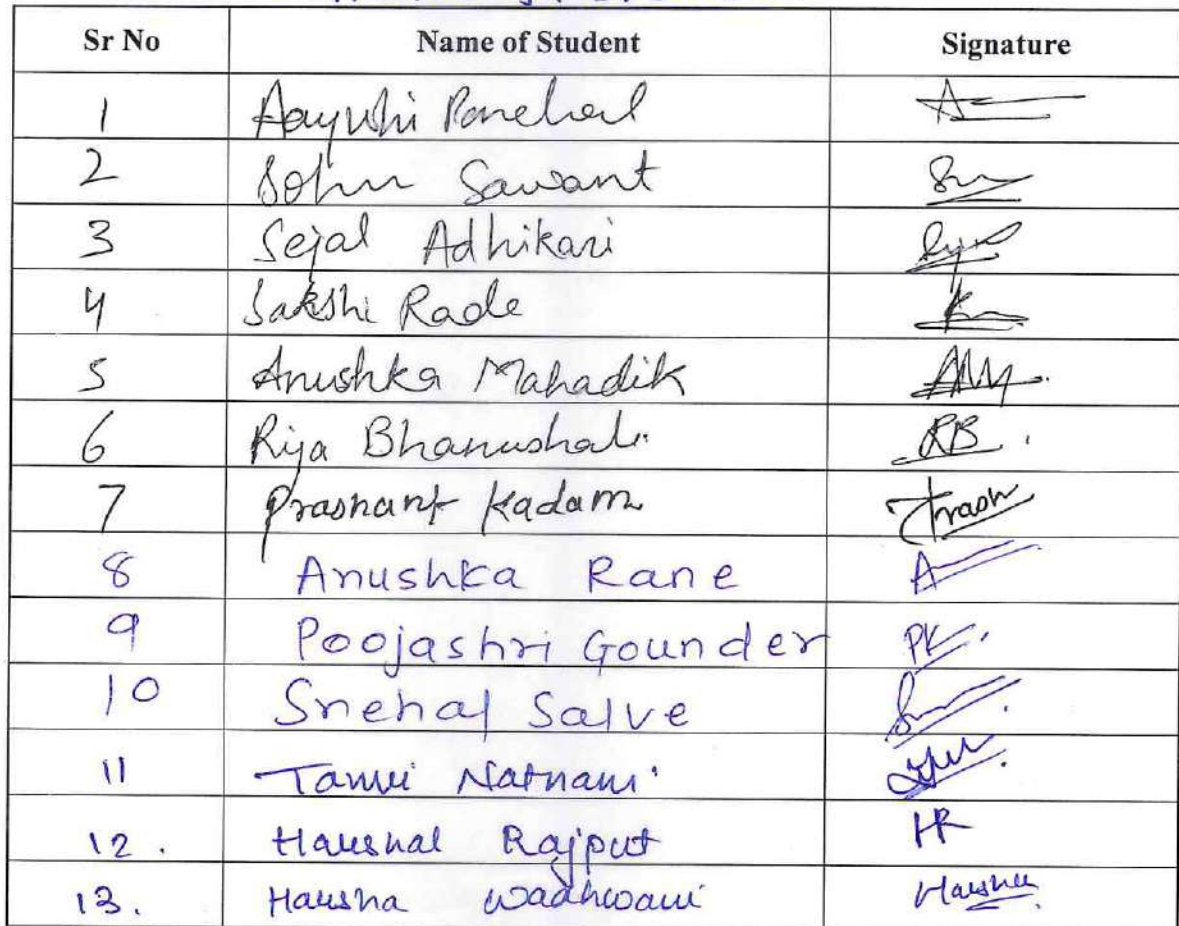 Sr No Name of Student Signature
1 Aayushi Panchal
2 Sohm Sawant
3 Sejal Adhikari
4 Sakshi Rade
5 Anushka Mahadik
6 Riya Bhanushali RB.
7 Prashant Kadam Prash
8 Anushka Rane A
9 Poojashri Gounder PK.
10 Snehal Salve
11 Tanvi Natnani
12. Harshal Rajput HR
13. Harsha Wadhwani Harsha